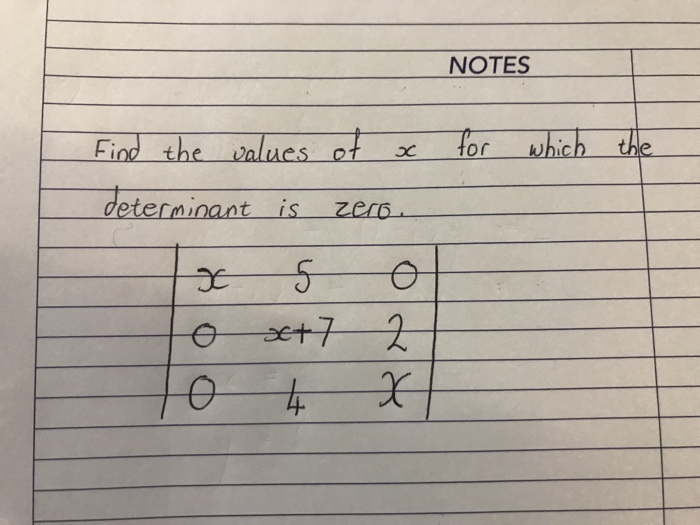 NOTES
Find the values of x for which the
determinant is zero.
x 5 0
0 x+7 2
0 4 x